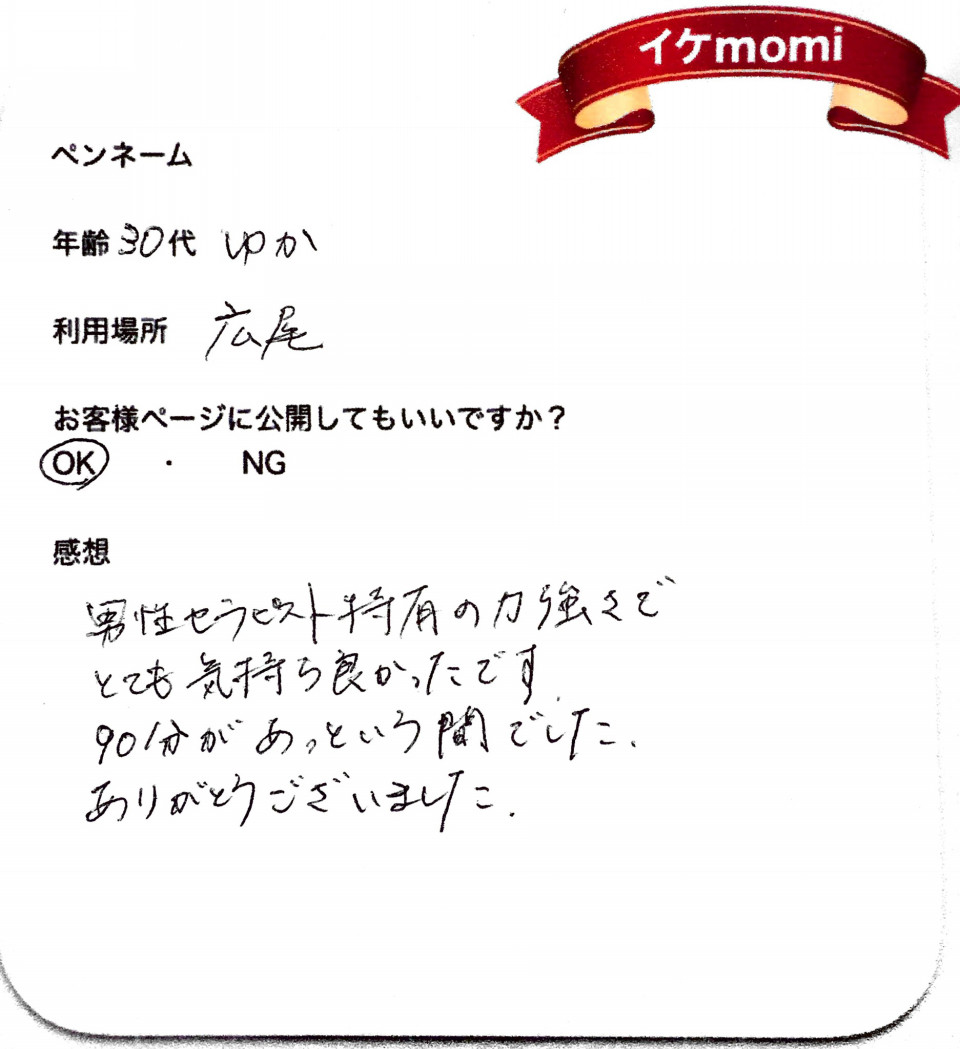 イケmomi
ペンネーム
年齢 30代 ゆか
利用場所 広尾
お客様ページに公開してもいいですか？
OK ・ NG
感想
男性セラピスト特有の力強さで
とても気持ち良かったです.
90分があっという間でした.
ありがとうございました.